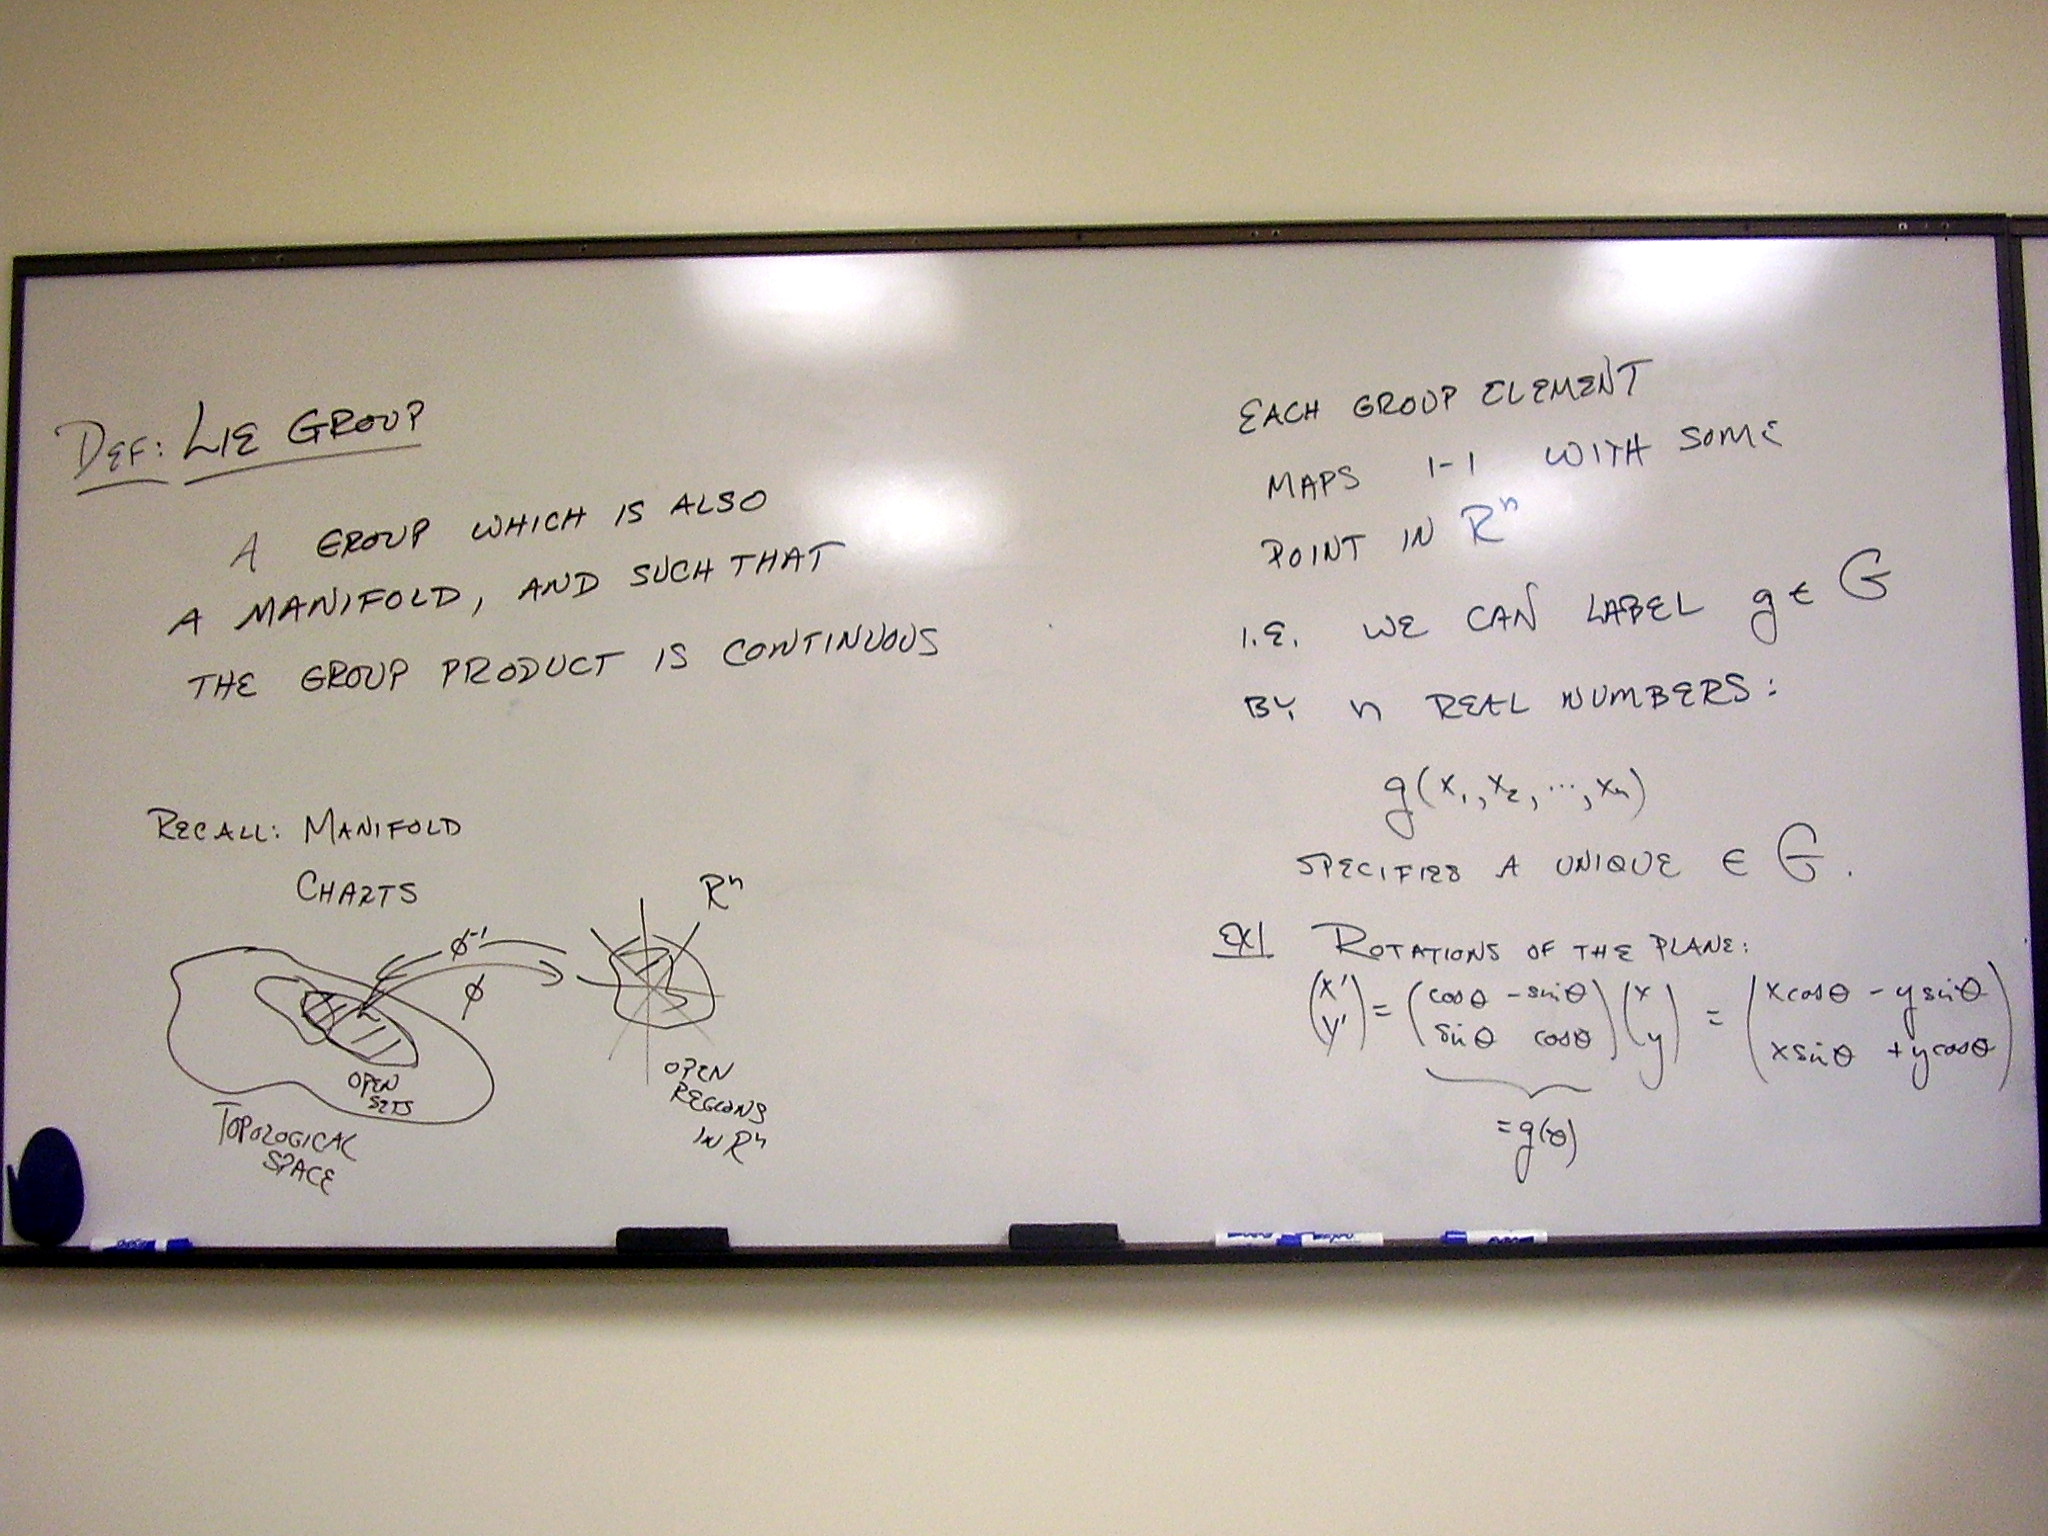 DEF: LIE GROUP
A GROUP WHICH IS ALSO
A MANIFOLD, AND SUCH THAT
THE GROUP PRODUCT IS CONTINUOUS
RECALL: MANIFOLD
CHARTS
Rⁿ
ϕ⁻¹
ϕ
OPEN
SETS
TOPOLOGICAL
SPACE
OPEN
REGIONS
IN Rⁿ
EACH GROUP ELEMENT
MAPS 1-1 WITH SOME
POINT IN Rⁿ
I.E. WE CAN LABEL g ∈ G
BY n REAL NUMBERS:
g(x₁, x₂, ..., xₙ)
SPECIFIES A UNIQUE ∈ G.
EX/ ROTATIONS OF THE PLANE:
(x') = (cosθ -sinθ)(x) = (xcosθ - ysinθ)
(y') (sinθ cosθ)(y) (xsinθ + ycosθ)
= g(θ)